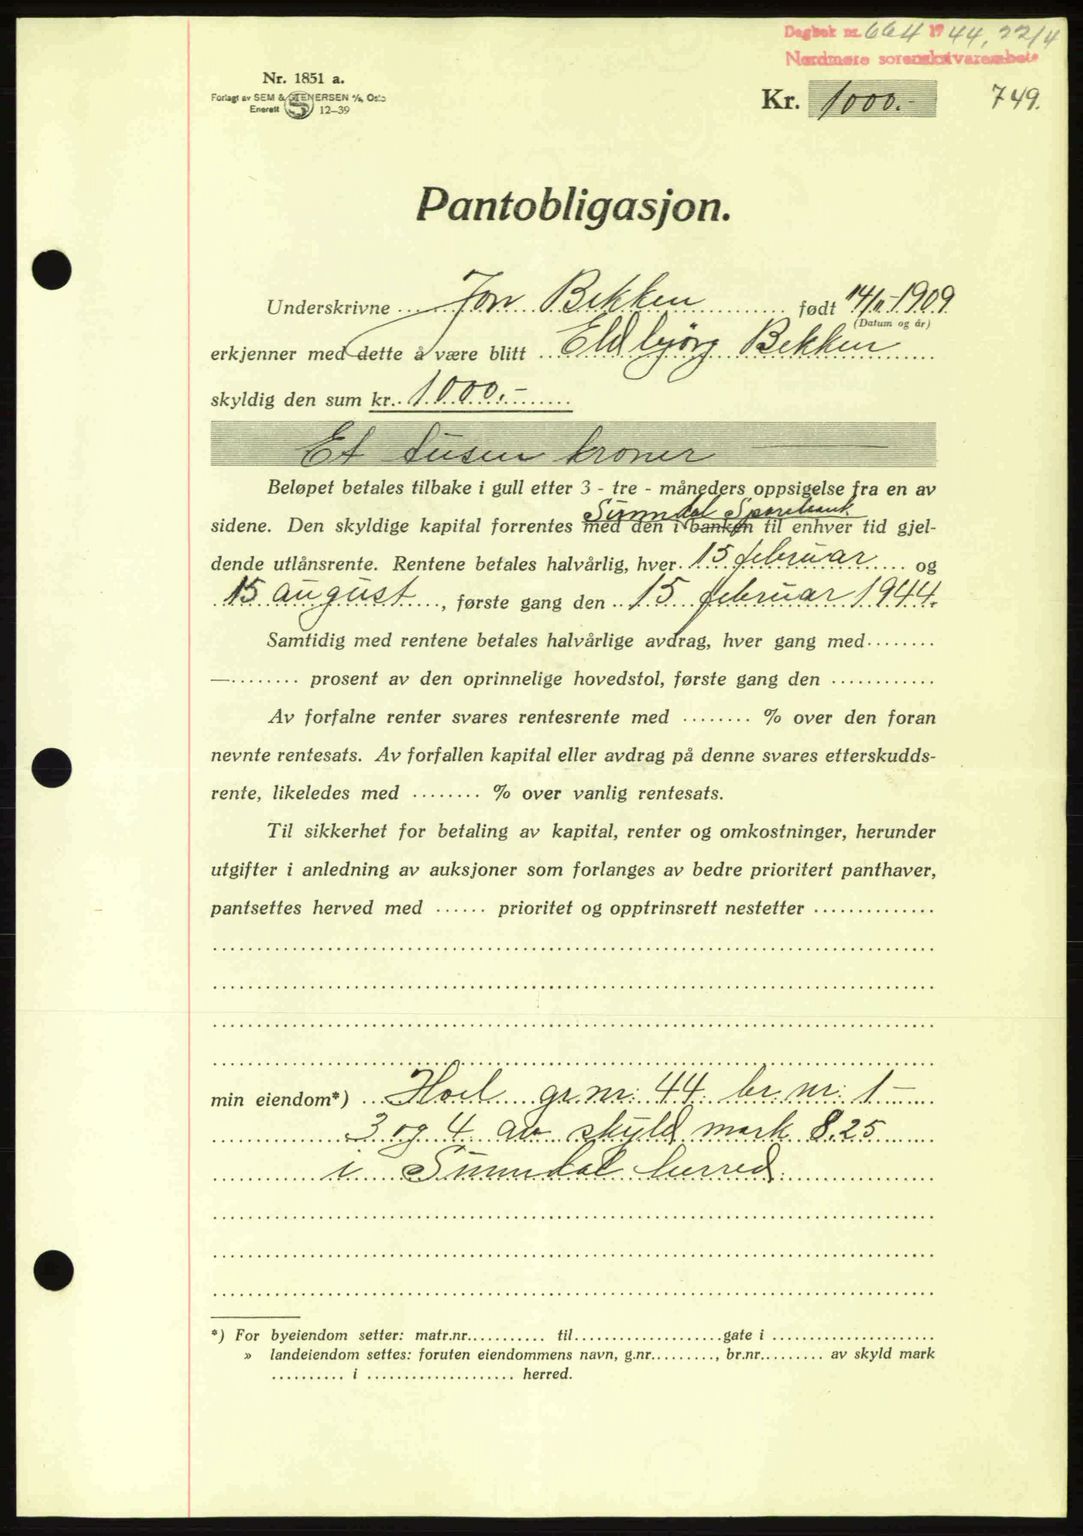 Dagbok nr. 664 1944, 22/4
Nordmøre sorenskriverembete
Nr. 1851 a.
Forlagt av SEM & STENERSEN A/S, Oslo
Enerett 12-39
Kr. 1000.-
749.
Pantobligasjon.
Underskrivne Jon Bekken født 14/11-1909
(Datum og år)
erkjenner med dette å være blitt Eldbjørg Bekken
skyldig den sum kr. 1000.-
Et tusen kroner
Beløpet betales tilbake i gull etter 3 - tre - måneders oppsigelse fra en av
Sunndal Sparebank
sidene. Den skyldige kapital forrentes med den i banken til enhver tid gjel-
dende utlånsrente. Rentene betales halvårlig, hver 15 februar og
15 august, første gang den 15 februar 1944.
Samtidig med rentene betales halvårlige avdrag, hver gang med........
—........ prosent av den oprinnelige hovedstol, første gang den ............
Av forfalne renter svares rentesrente med ........ % over den foran
nevnte rentesats. Av forfallen kapital eller avdrag på denne svares etterskudds-
rente, likeledes med ........ % over vanlig rentesats.
Til sikkerhet for betaling av kapital, renter og omkostninger, herunder
utgifter i anledning av auksjoner som forlanges av bedre prioritert panthaver,
pantsettes herved med ...... prioritet og opptrinsrett nestetter ..............
min eiendom*) Hoel gr.nr. 44 br.nr. 1 -
3 og 4 av skyld mark 8.25
i Sunndal herred.
*) For byeiendom setter: matr.nr........... til.....................gate i .......................
» landeiendom settes: foruten eiendommens navn, g.nr........., br.nr......... av skyld mark
.......... i ..................... herred.